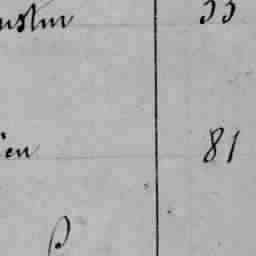 ustin 33
ien 81